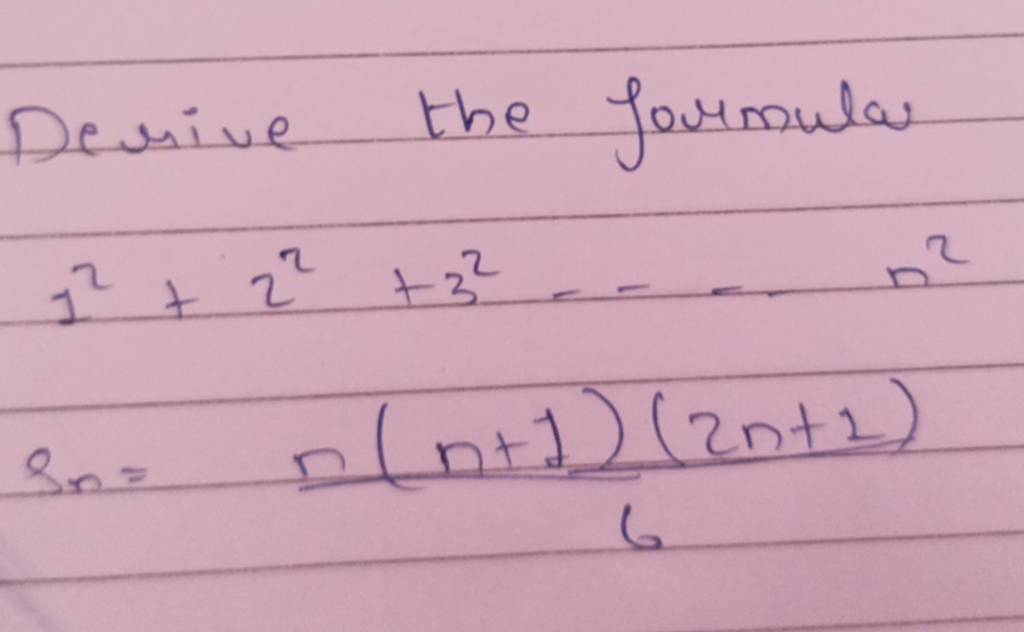 Derive the formula
1² + 2² + 3² - - - - n²
Sn = n(n+1)(2n+1)
6